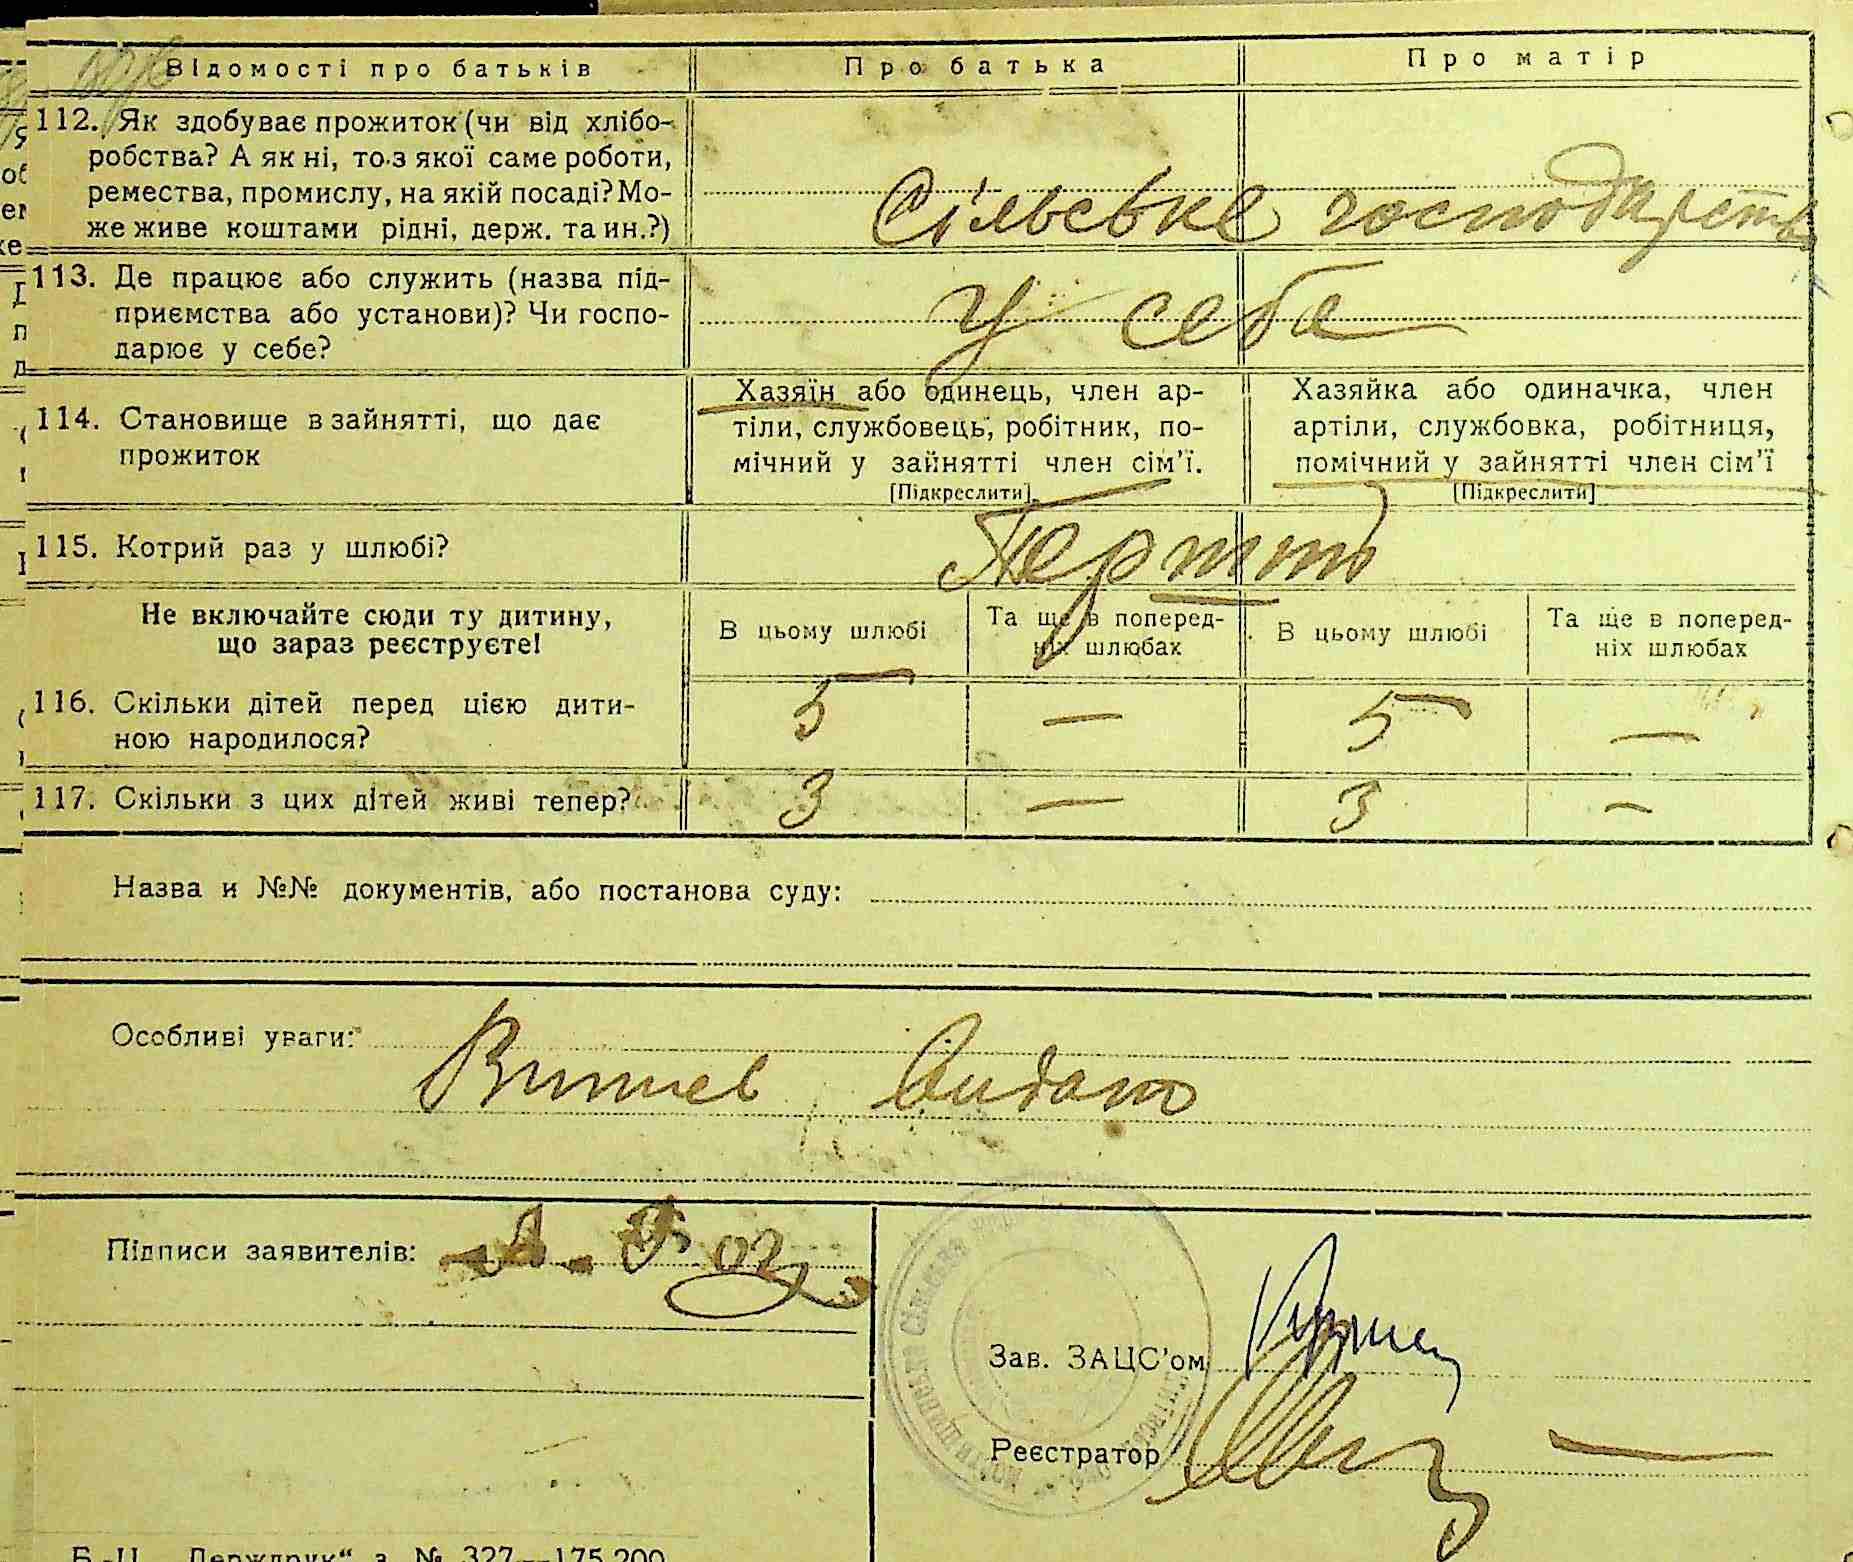 Відомості про батьків Про батька Про матір
112. Як здобуває прожиток (чи від хлібо-
робства? А як ні, то з якої саме роботи,
ремества, промислу, на якій посаді? Мо-
же живе коштами рідні, держ. та ин.?)
Сільське господарство
113. Де працює або служить (назва під-
приємства або установи)? Чи госпо-
дарює у себе?
У себе
114. Становище в зайнятті, що дає
прожиток
Хазяїн або одинець, член ар-
тіли, службовець, робітник, по-
мічний у зайнятті член сім'ї.
[Підкреслити]
Хазяйка або одиначка, член
артіли, службовка, робітниця,
помічний у зайнятті член сім'ї
[Підкреслити]
115. Котрий раз у шлюбі?
Не включайте сюди ту дитину,
що зараз реєструєте!
В цьому шлюбі
Та ще в поперед-
ніх шлюбах
В цьому шлюбі
Та ще в поперед-
ніх шлюбах
116. Скільки дітей перед цією дити-
ною народилося?
5 — 5 —
117. Скільки з цих дітей живі тепер? 3 — 3 —
Назва и №№ документів, або постанова суду:
Особливі уваги:
Видано
Підписи заявителів:
Зав. ЗАЦС'ом
Реєстратор
Б.-Ц. „Держдрук“ з. № 327—175.200